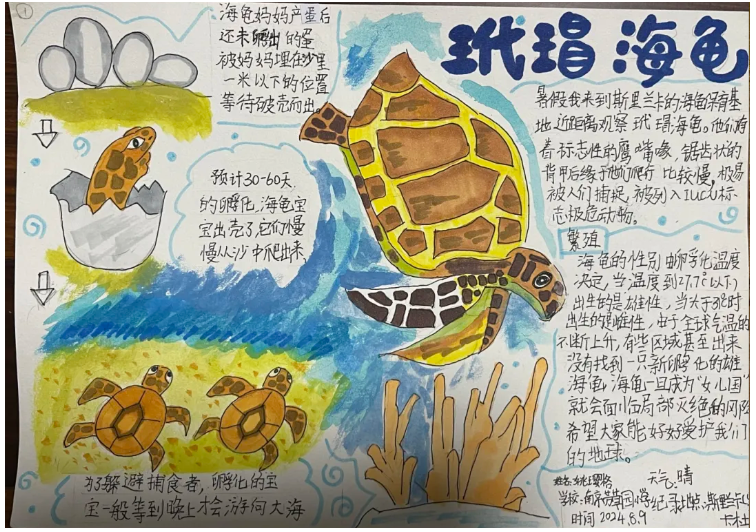 1
海龟妈妈产蛋后
还未孵出的蛋
被妈妈埋在沙里
一米以下的位置
等待破壳而出
玳瑁海龟
暑假我来到斯里兰卡的海龟保育基
地近距离观察玳瑁海龟。他们有
着标志性的鹰嘴喙,锯齿状的
背甲后缘,于他们爬行比较慢,极易
被人们捕捉,被列入IUCU标
志极危动物。
预计30-60天
的孵化,海龟宝
宝出壳了,它们慢
慢从沙中爬出来
繁殖
海龟的性别由孵化温度
决定,当温度到27.7°以下
出生的是雄性,当大于31°时
出生的是雌性,由于全球气温的
不断上升,有些区域甚至出来
没有找到一只新孵化的雄
海龟,海龟一旦成为"女儿国"
就会面临局部灭绝的风险
希望大家能好好爱护我们
的地球。
为了躲避捕食者,孵化的宝
宝一般等到晚上才会游向大海
姓名: 天气:晴
学校: 纪录: 斯里兰卡
时间 2024.8.9